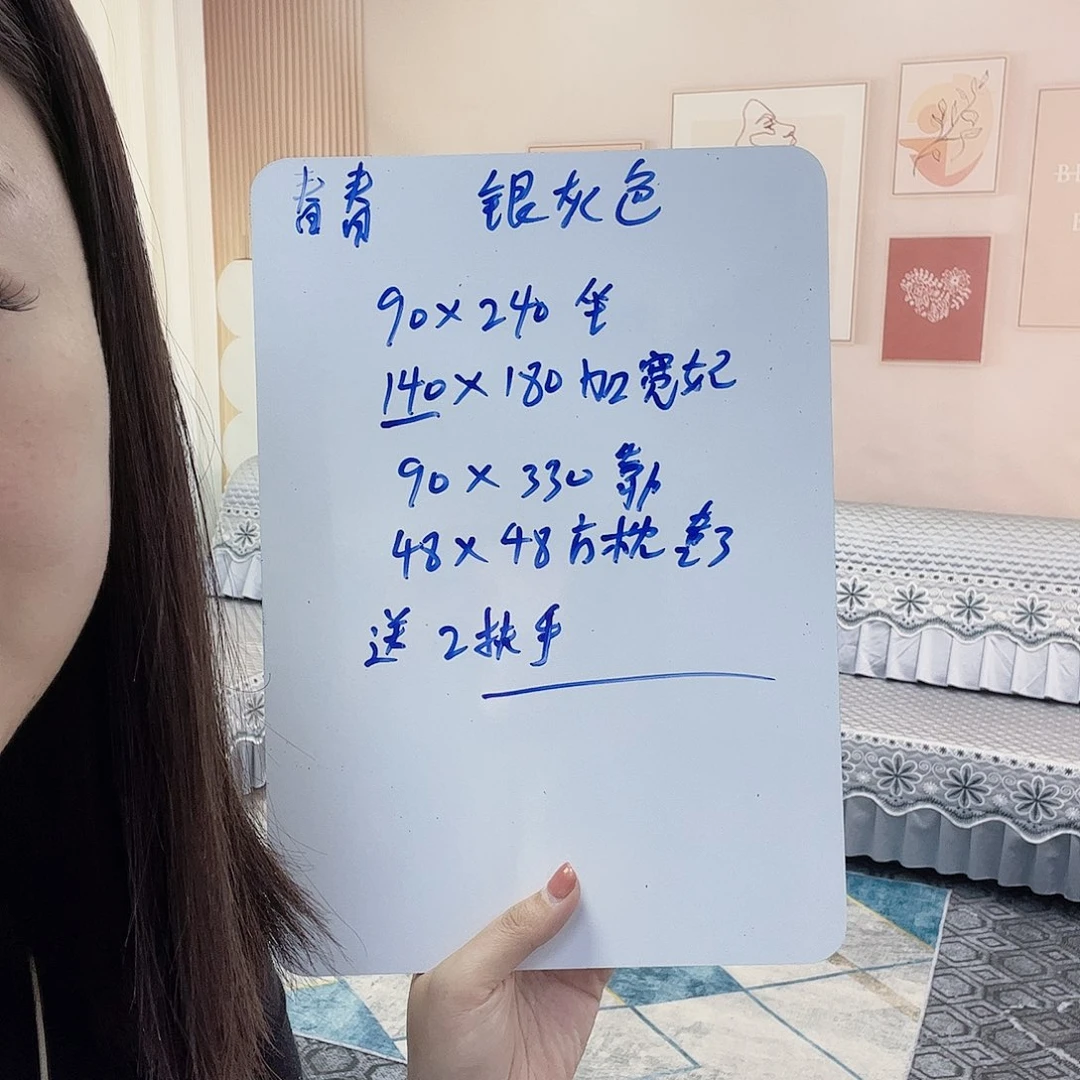 银灰色
90×240 坐
140×180 加宽妃
90×330 靠
48×48方枕套3
送 2扶手